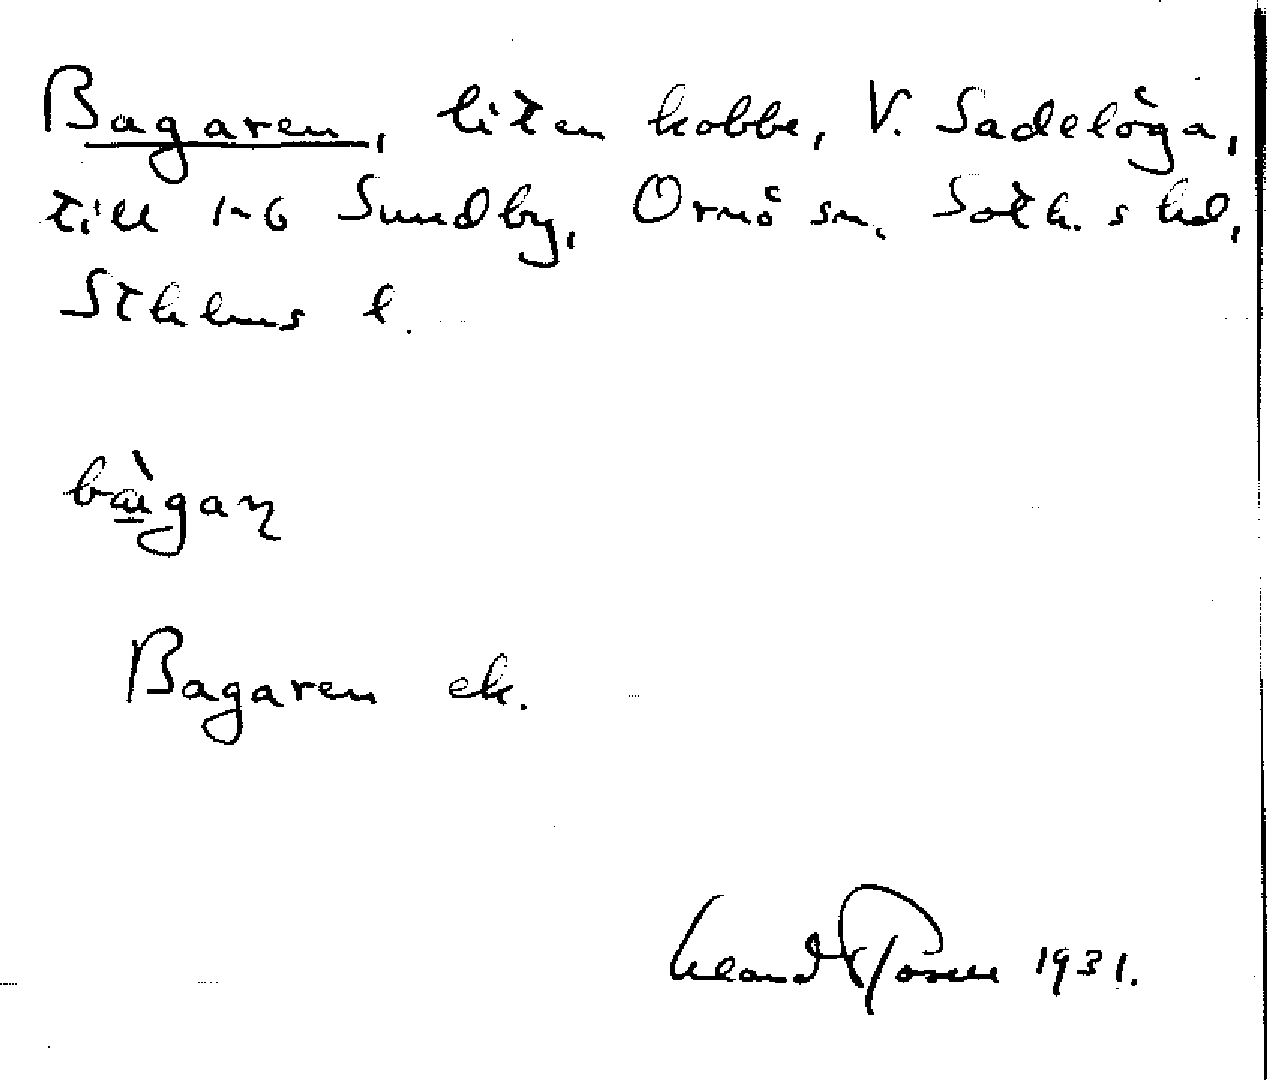 Bagaren, liten kobbe, V. Sadelöga,
till 1-6 Sundby, Ornö sn, Soth. s hd,
Sthlms l.
bàgaɳ
Bagaren ek.
1931.